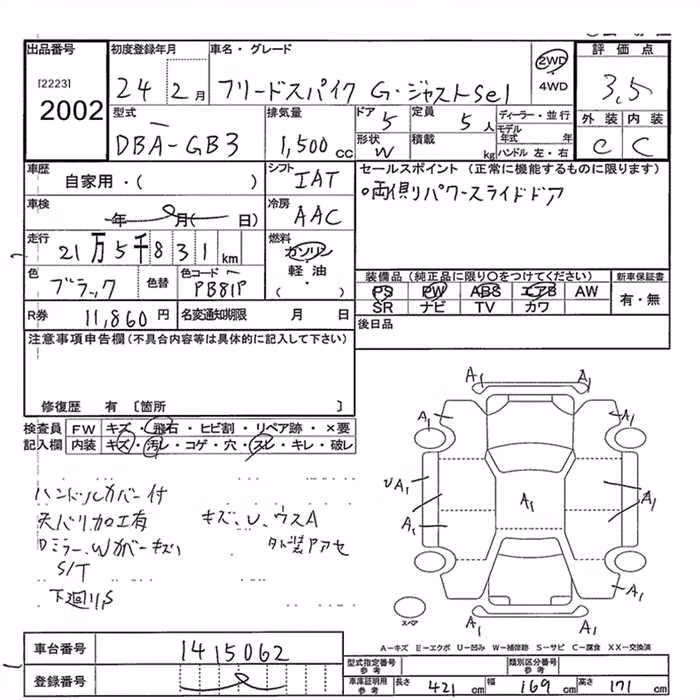 出品番号 初度登録年月 車名・グレード 評価点
[2223] 2002
24 2月 フリードスパイク G・ジャストSel 2WD・4WD 3.5
型式 排気量 ドア 5 定員 5人 ディーラー・並行 外装 内装
DBA-GB3 1,500cc 形状 W 積載 kg モデル年式 年 ハンドル 左・右 C C
車歴 シフト セールスポイント(正常に機能するものに限ります)
自家用・( ) IAT
車検 冷房 両側リパワースライドドア
年 月( 日) AAC
走行 21万5千831km 燃料 ガソリン・軽油・( )
色 ブラック 色替 色コード PB81P
装備品(純正品に限り○をつけてください) 新車保証書
PS PW ABS エアB AW 有・無
SR ナビ TV カワ
R券 11,860円 名変通知期限 月 日 後日品
注意事項申告欄(不具合内容等は具体的に記入して下さい)
修復歴 有 〔箇所 〕
検査員記入欄 FW キズ・飛石・ヒビ割・リペア跡・×要
内装 キズ・汚レ・コゲ・穴・スレ・キレ・破レ
ハンドルカバー付
天バリ加工有 キズ、U、ウスA
Dミラー、Wカバーキズ 外装アアセ
S/T
下廻りS
A1 A1
A1 A1
UA1 A1 A1
A1
A1
A1 A1
スペア
A-キズ E-エクボ U-凹み W-補修跡 S-サビ C-腐食 XX-交換済
車台番号 1415062
型式指定番号 参考 類別区分番号 参考
登録番号 車庫証明用 参考 長さ 421cm 幅 169cm 高さ 171cm